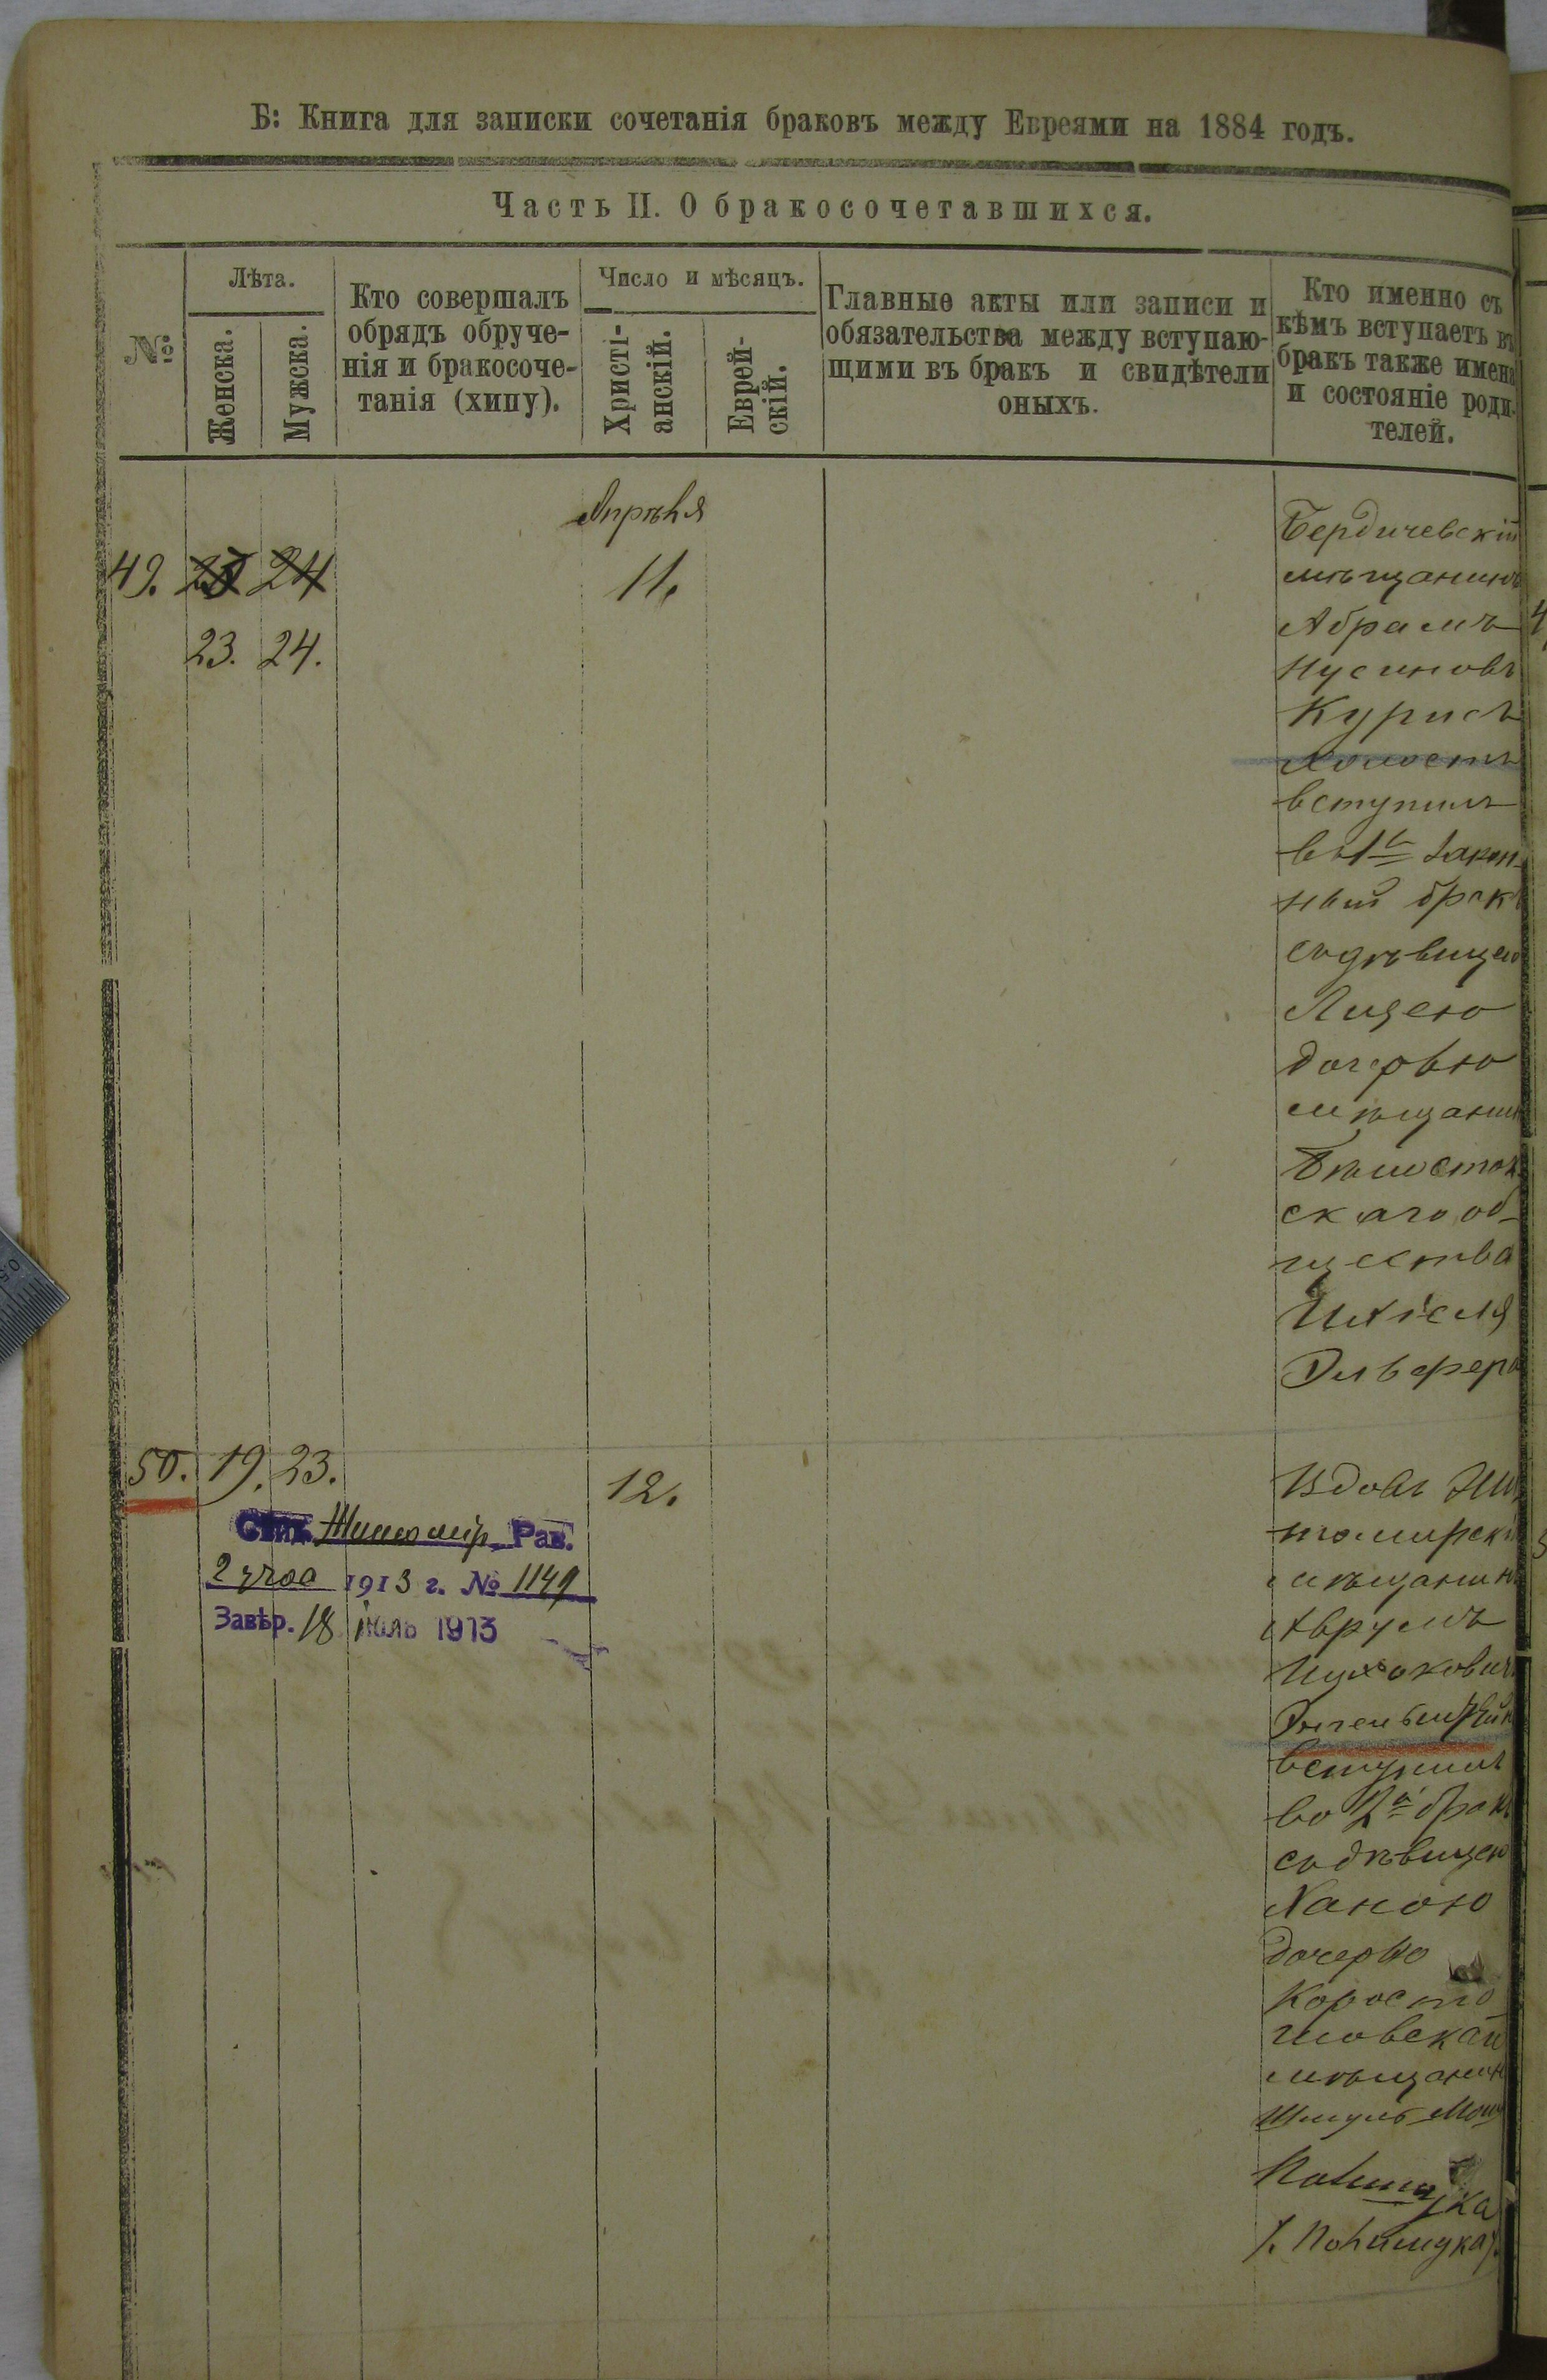 Б: Книга для записки сочетанія браковъ между Евреями на 1884 годъ.
Часть II. О бракосочетавшихся.
№
Лѣта.
Женска.
Мужска.
Кто совершалъ
обрядъ обруче-
нія и бракосоче-
танія (хипу).
Число и мѣсяцъ.
Христі-
анскій.
Еврей-
скій.
Главные акты или записи и
обязательства между вступаю-
щими въ бракъ и свидѣтели
оныхъ.
Кто именно съ
кѣмъ вступаетъ въ
бракъ также имена
и состояніе роди-
телей.
Апрѣля
49. 24 11.
23. 24.
Бердичевскій
мѣщанинъ
Абрамъ
Нусиновъ
Курисъ
холостъ
вступилъ
въ 1й закон-
ный бракъ
съ дѣвицею
Лизею
дочерью
мѣщанин
Бѣлосток
скаго об-
щества
Ихіеля
50. 19. 23. 12.
Житомір. Рав.
1913 г. № 1149
Завѣр. 18 іюль 1913
Вдовъ Жи
томирскій
мѣщанинъ
Аврумъ
Ицхокович
вступилъ
во 2й бракъ
съ дѣвицею
Ханою
дочерью
Коросты
шовскаго
мѣщанин
Шмуль Мош
Полищука
/. Полищука /.